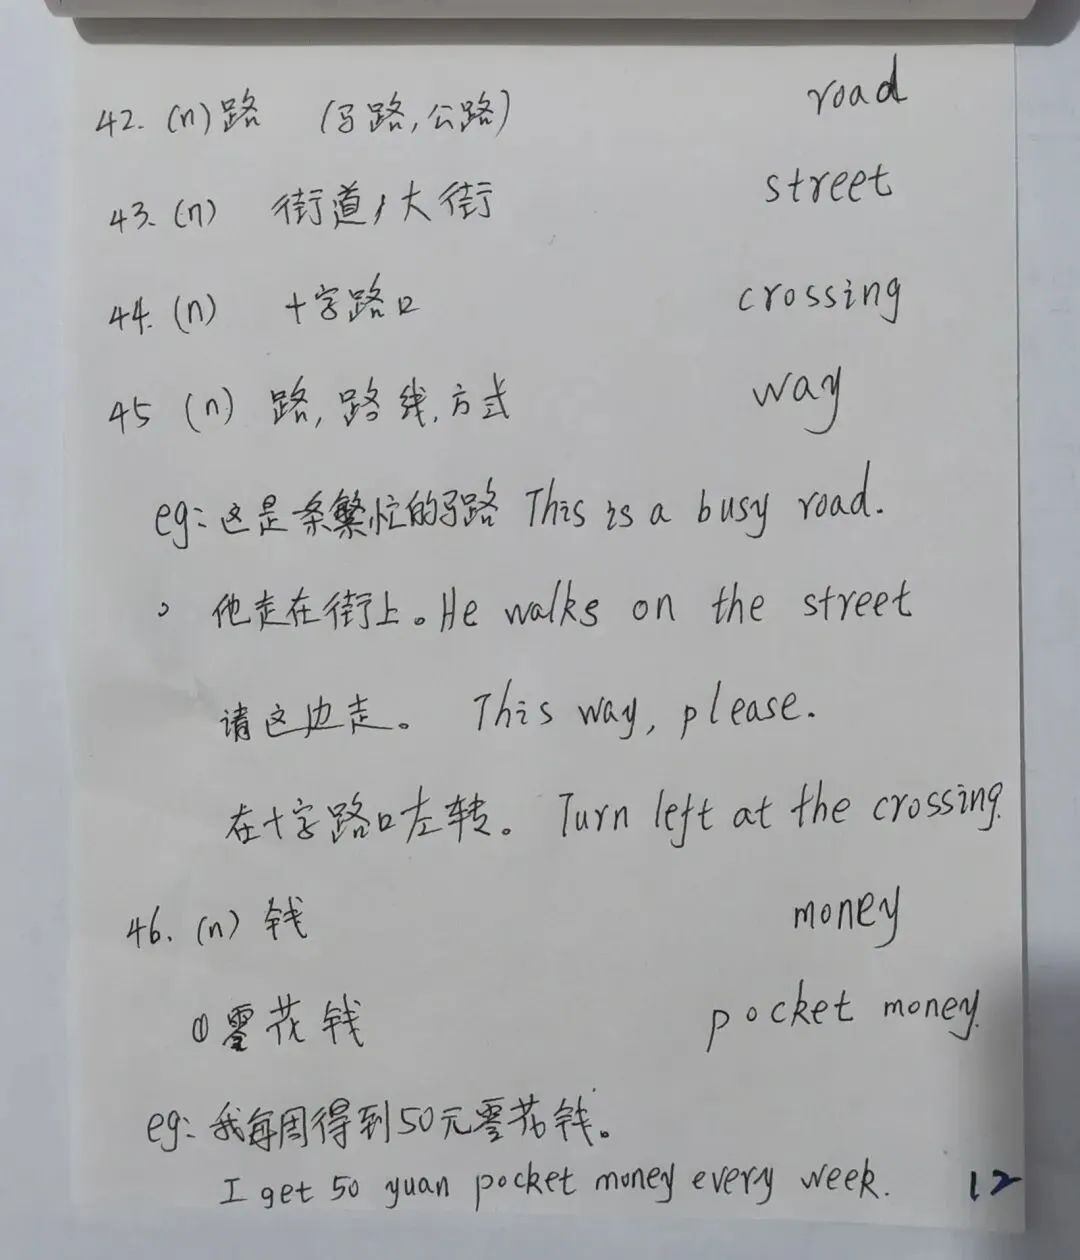 42. (n) 路 (马路,公路) road
43. (n) 街道,大街 street
44. (n) 十字路口 crossing
45 (n) 路,路线,方式 way
eg: 这是条繁忙的马路 This is a busy road.
他走在街上。He walks on the street
请这边走。 This way, please.
在十字路口左转。 Turn left at the crossing.
46. (n) 钱 money
① 零花钱 pocket money.
eg: 我每周得到50元零花钱。
I get 50 yuan pocket money every week.
12